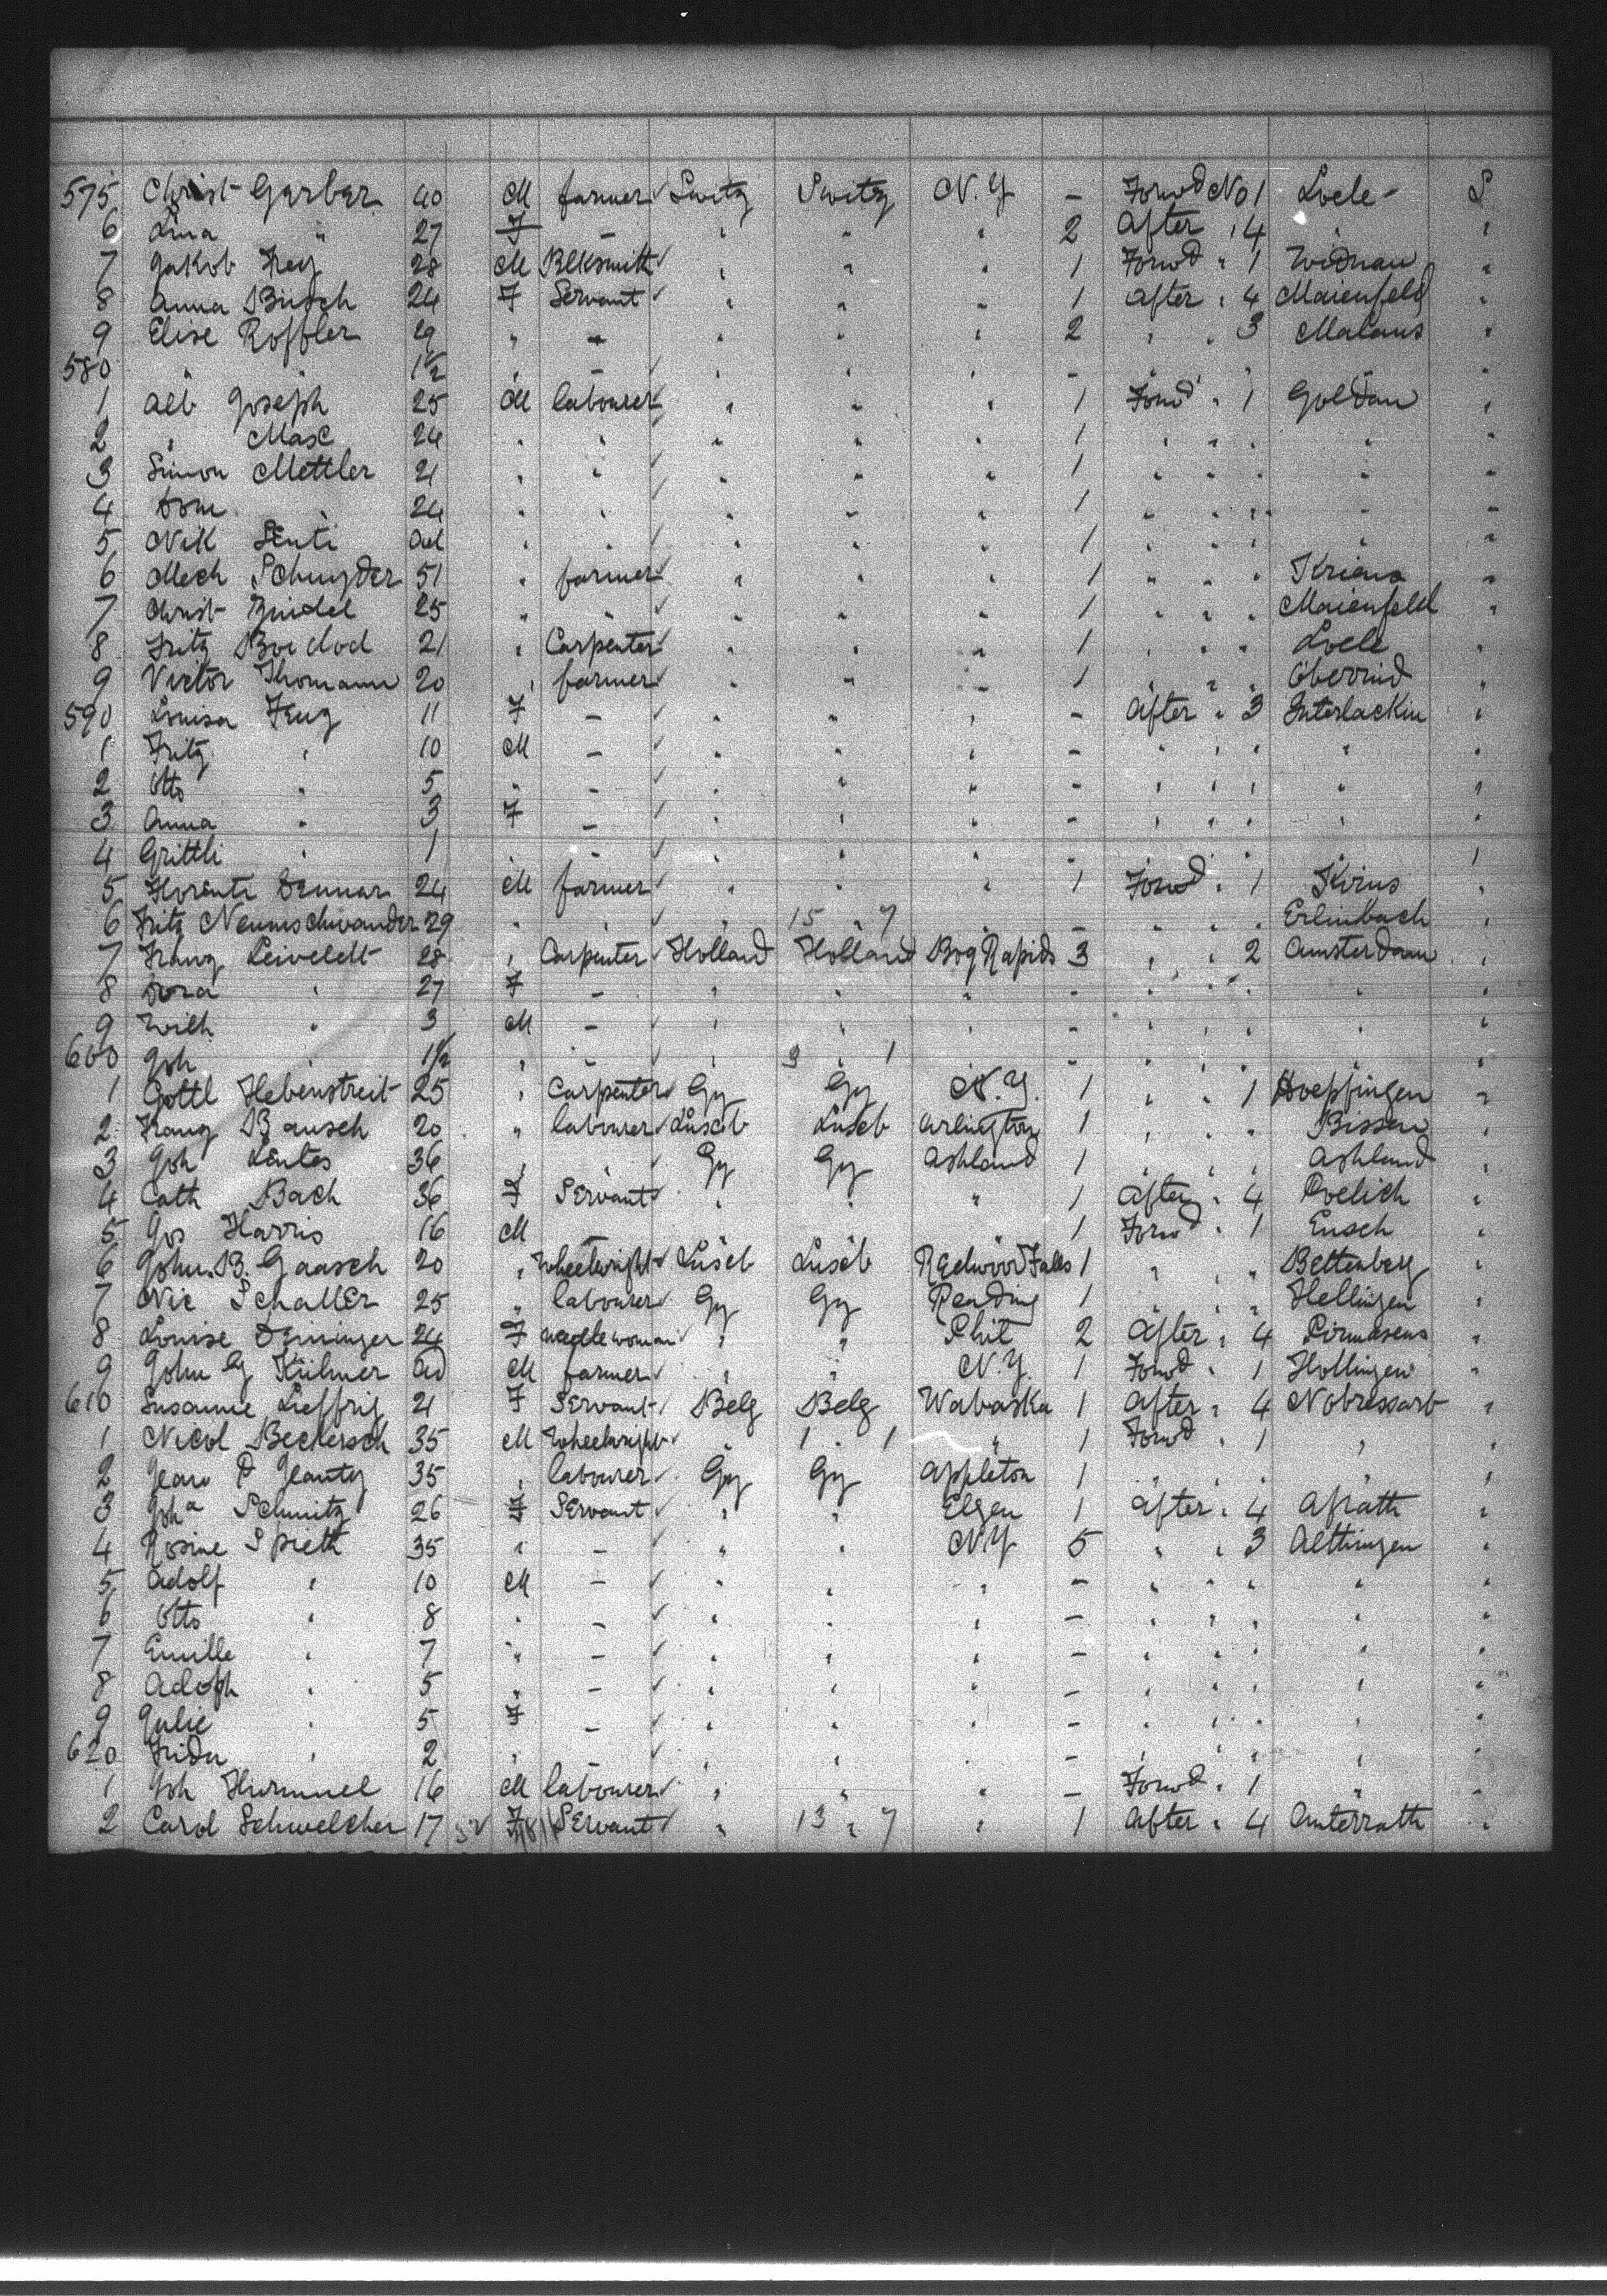 575 Christ Gerber 40 M farmer Switz Switz N.Y - Forwd No 1 Locle - S
6 Lina " 27 F - " " " 2 After " 4 " "
7 Jakob Frey 28 M Blksmith " " " 1 Forwd " 1 Widnau "
8 Anna Büsch 24 F Servant " " " 1 After " 4 Maienfeld "
9 Elise Roffler 29 " - " " " 2 " " 3 Malans "
580 " " 1½ " " " - " " " " "
1 Alb Joseph 25 M labourer " " " 1 Forwd " 1 Goldau "
2 " Max 24 " " " " " 1 " " " " "
3 Simon Mettler 21 " " " " " 1 " " " " "
4 Dom " 24 " " " " " 1 " " " " "
5 Nik Senti Ad " " " " " 1 " " " " "
6 Mech Schnyder 51 " farmer " " " 1 " " " Kriens "
7 Christ Zindel 25 " " " " " 1 " " " Maienfeld "
8 Fritz 21 " Carpenter " " " 1 " " " Locle "
9 Victor Thomann 20 " farmer " " " 1 " " " Oberried "
590 Louisa Feuz 11 F - " " " - After " 3 Interlackin "
1 Fritz " 10 M - " " " - " " " " "
2 Otto " 5 " - " " " - " " " " "
3 Anna " 3 F - " " " - " " " " "
4 Grittli " 1 " - " " " - " " " " "
5 24 M farmer " " " 1 Forwd " 1 "
6 Fritz Neunschwander 29 " " " 15 " 7 " - " " " Erlinbach "
7 Franz Leiveldt 28 " Carpenter Holland Holland Bog Rapids 3 " " 2 Amsterdam "
8 Dora " 27 F - " " " - " " " " "
9 Wilh " 3 M - " " " - " " " " "
600 Joh " 1½ " - " 9 " 1 " - " " " " "
1 Gottl Hebenstreit 25 " Carpenter Gy Gy N.Y. 1 " " 1 Hoepfingen "
2 Franz Bausch 20 " labourer Luxeb Luxeb Arlington 1 " " " Bissen "
3 Joh Lentes 36 " " Gy Gy Ashland 1 " " " Ashland "
4 Cath Bach 36 F Servant " " " 1 After " 4 "
5 Jos Harris 16 M - " " " 1 Forwd " 1 Ensch "
6 John. B. Gaasch 20 " Wheelwright Luxeb Luxeb Redwood Falls 1 " " " Bettenberg "
7 Nic Schaller 25 " labourer Gy Gy Reading 1 " " " Hellingen "
8 Louise Deininger 24 F needlewoman " " Phil 2 After " 4 Pirmasens "
9 John G Külmer Ad M farmer " " N.Y. 1 Forwd " 1 Hollingen "
610 Susanne Lieffrig 21 F Servant Belg Belg Wabaska 1 After " 4 Nobressart "
1 Nicol Beckersch 35 M Wheelwright " 1 " 1 " 1 Forwd " 1 " "
2 Jean P Glautz 35 " labourer Gy Gy Appleton 1 " " " " "
3 Joha Schmitz 26 F Servant " " Elgen 1 After " 4 Afrath "
4 Rosine Spieth 35 " - " " N.Y 5 " " 3 Altlingen "
5 Adolf " 10 M - " " " - " " " " "
6 Otto " 8 " - " " " - " " " " "
7 Emille " 7 " - " " " - " " " " "
8 Adolph " 5 " - " " " - " " " " "
9 Julie " 5 F - " " " - " " " " "
620 Frida " 2 " - " " " - " " " " "
1 Joh Hummel 16 M labourer " " " - Forwd " 1 " "
2 Carol Schwelcher 17 F Servant " 13 " 7 " 1 After " 4 Anterrath "